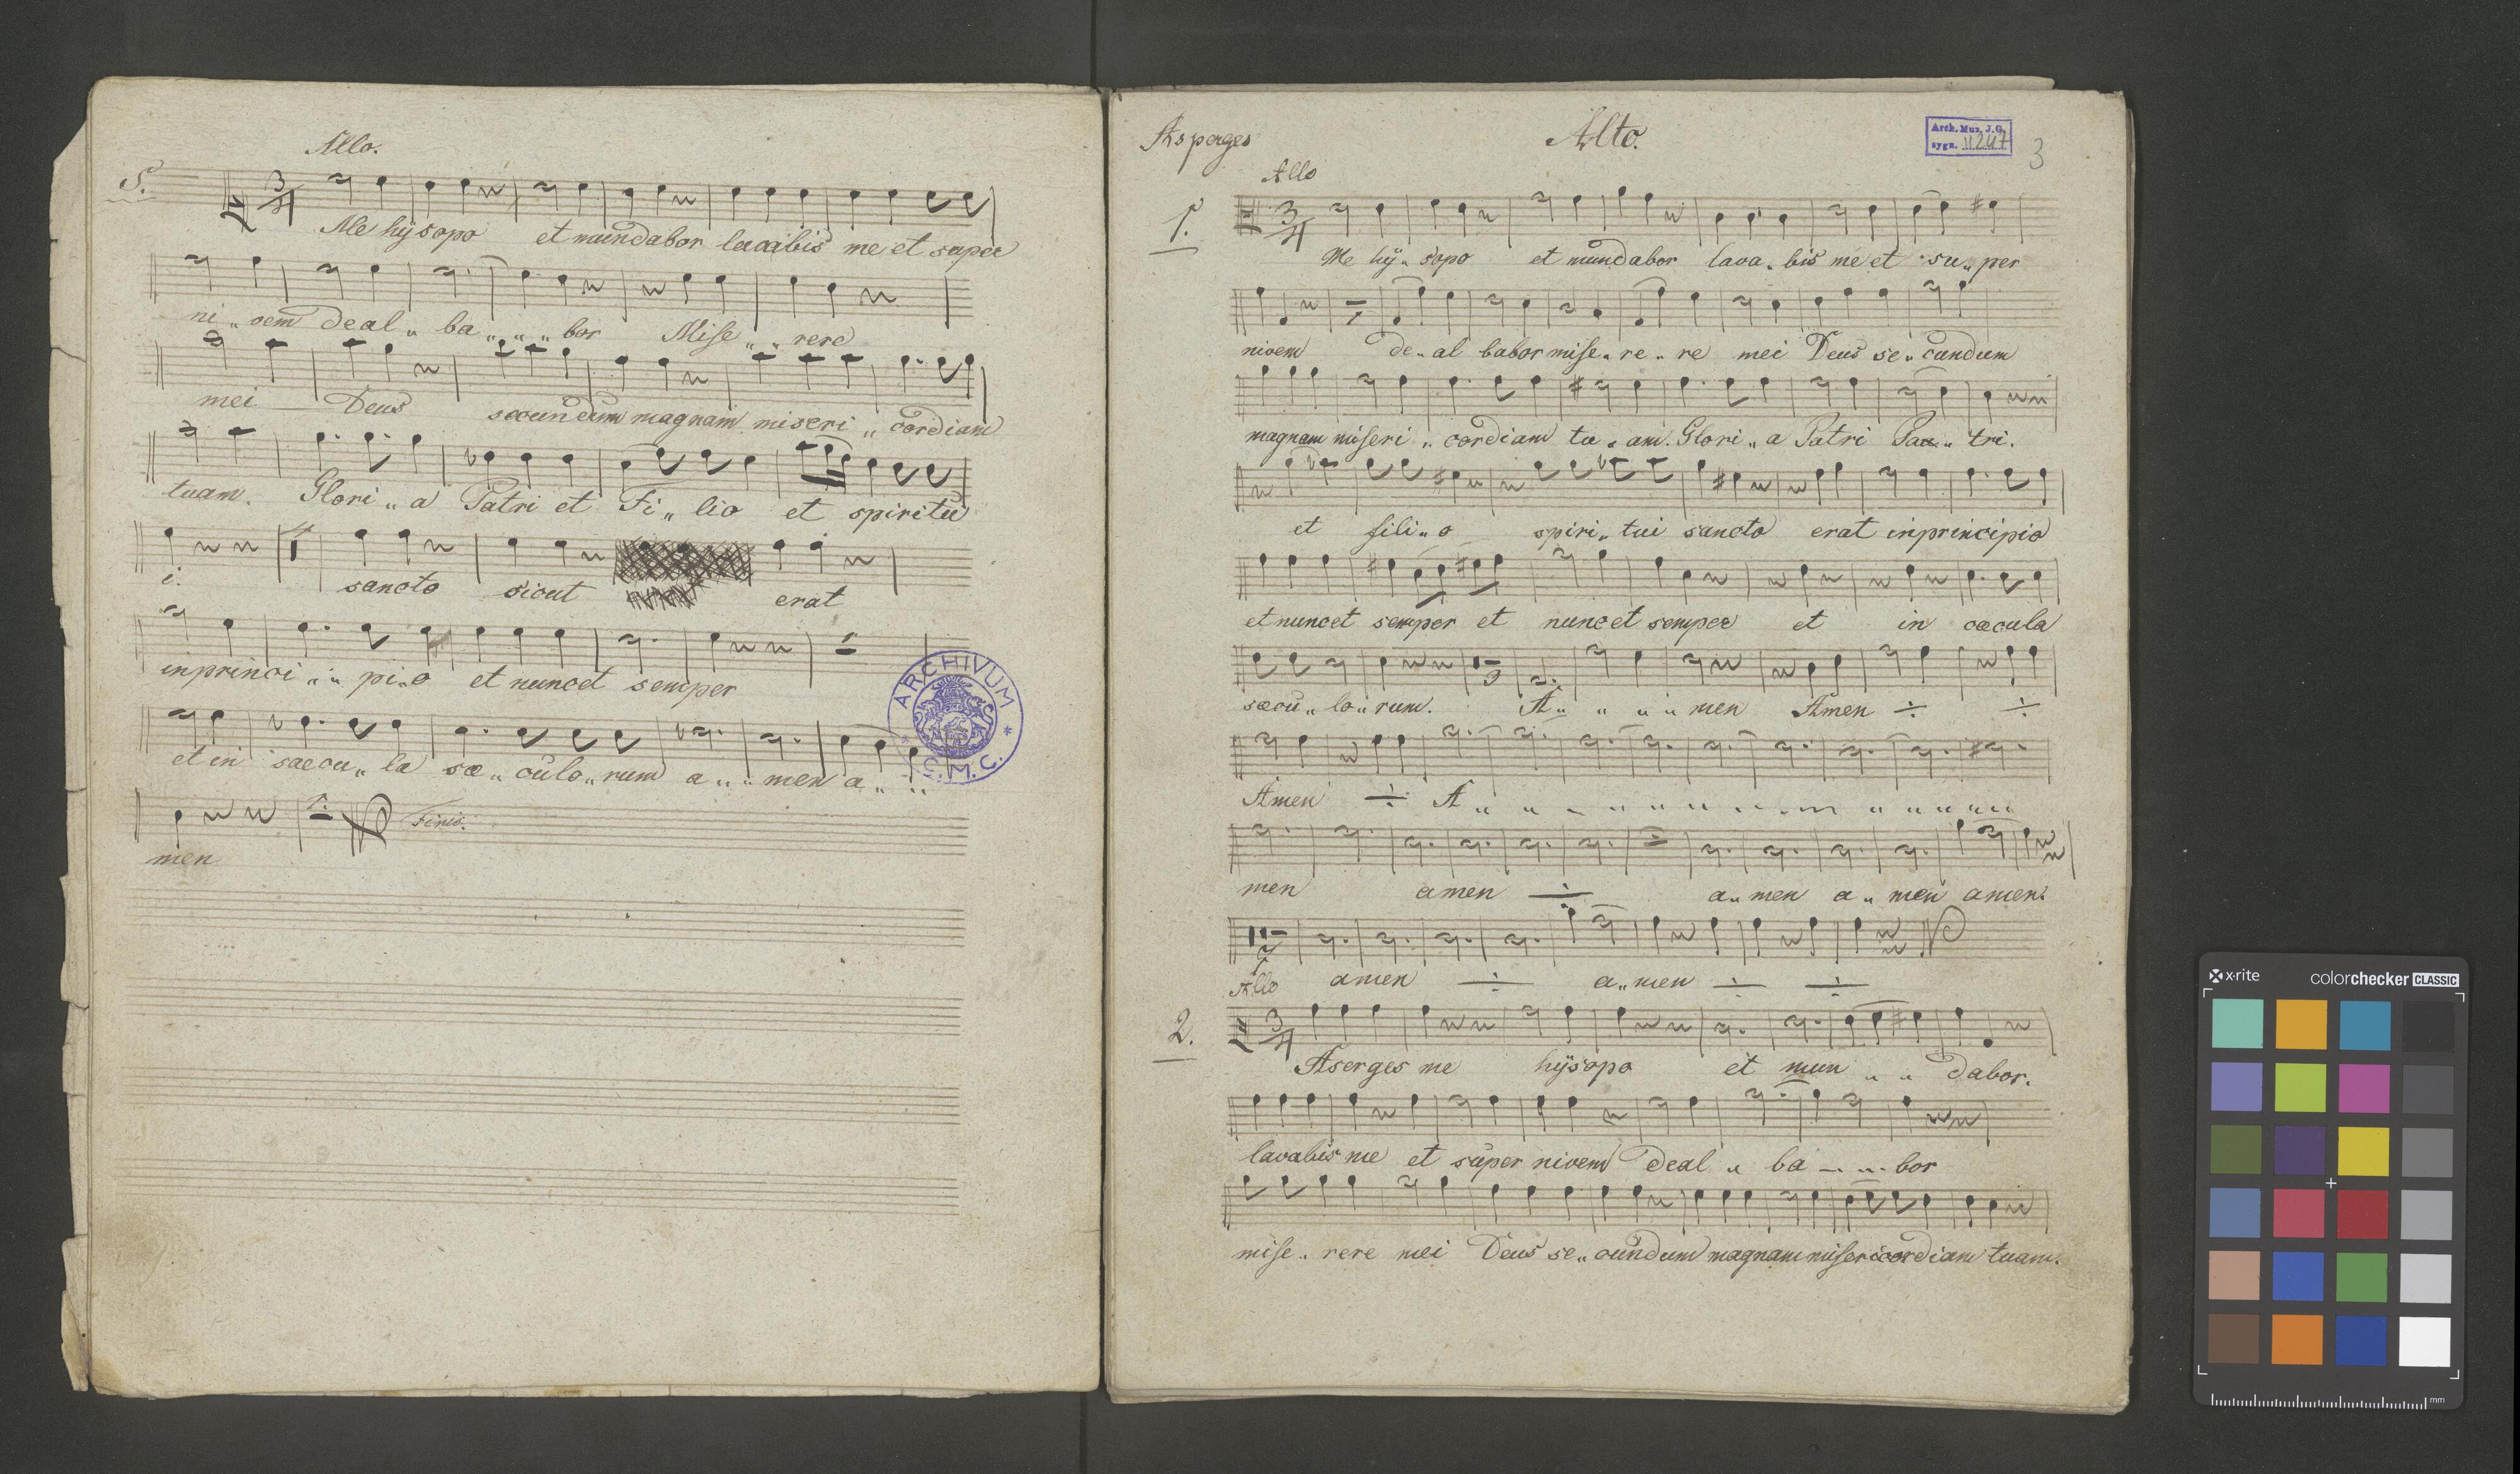 Allo.
5.
3/4
Me hÿsopo et mundabor lavabis me et super
ni „ vem deal „ ba „ „ „ bor Mise „ „ rere
mei Deus secundum magnam miseri „ cordiam
tuam. Glori „ a Patri et Fi „ lio et spiritu
i. sancto sicut erat
4
inprinci „ „ pi „ o et nuncet semper
et in saecu „ la sae „ culo „ rum a „ „ men a „ „
Finis.
men
ARCHIVUM * C.M.C. *
Asperges Alto.
Arch. Muz. J.G.
sygn. II 247
3
Allo
1.
3/4
Me hÿ „ sopo et mundabor lava „ bis me et su „ per
nivem de „ al babor mise „ re „ re mei Deus se „ cundum
magnam miseri „ cordiam tu „ am. Glori „ a Patri Pa „ tri.
et fili „ o spiri „ tui sancto erat inprincipio
et nuncet semper et nuncet semper et in saecula
saecu „ lo „ rum. A „ „ „ „ men Amen ÷ ÷
Amen ÷ A „ „ „ „ „ „ „ „ „ „ „ „ „
men amen ÷ a „ men a „ men amen.
Allo amen ÷ a „ men ÷ ÷
2.
3/4
Aserges me hÿsopo et mun „ „ dabor.
lavabis me et super nivem deal „ ba „ „ bor
mise „ rere mei Deus se „ cundum magnam misericordiam tuam.
x-rite colorchecker CLASSIC
mm